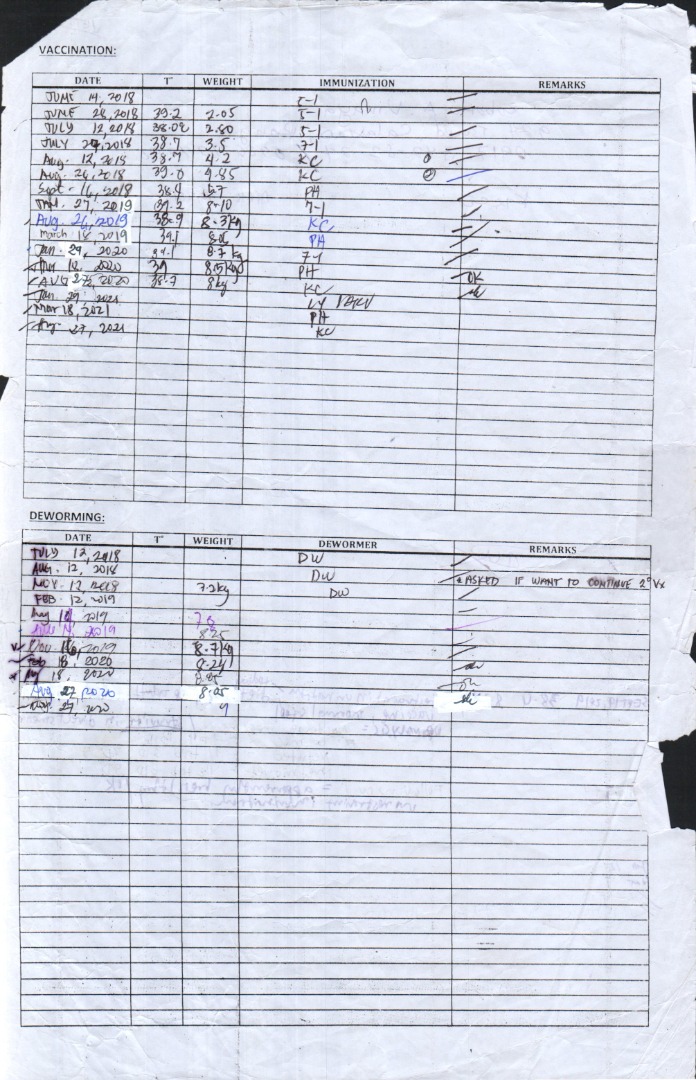 VACCINATION:
DATE T° WEIGHT IMMUNIZATION REMARKS
JUNE 14, 2018 5-1
JUNE 28, 2018 39.2 2.05 5-1
JULY 12, 2018 38.02 2.80 5-1
JULY 29, 2018 38.7 3.5 7-1
Aug. 12, 2018 38.7 4.2 KC
Aug. 26, 2018 39.0 4.85 KC
Sept - 16, 2018 38.4 5.7 PH
27, 2019 39.2 8.10 7-1
Aug. 26, 2019 38.9 8.3kg KC
March 18, 2019 39.1 PH
Jan. 29, 2020 8.7 kg 7-1
12, 2020 39 8.5kg PH
AUG 27, 2020 38.7 8kg KC OK
Jan. 29, 2021
Mar 18, 2021 PH
Aug. 27, 2021 KC
DEWORMING:
DATE T° WEIGHT DEWORMER REMARKS
JULY 12, 2018 DW
AUG. 12, 2018 DW
NOV. 12, 2018 7.2kg DW * ASKED IF WANT TO CONTINUE 2° Vx
FEB 12, 2019
2019 7.8
2019 8.25
Nov 2019 8.7kg
Feb 18, 2020 8.24
18, 2020 8.85
Aug 27, 2020 8.05
Nov. 27, 2020 9